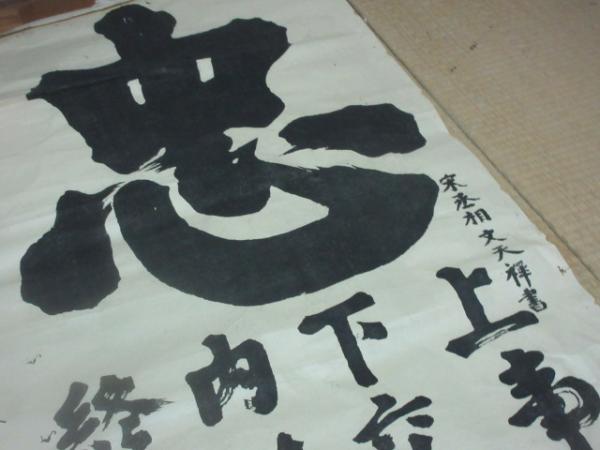 忠
宋丞相文天祥書
上事
下
内
終